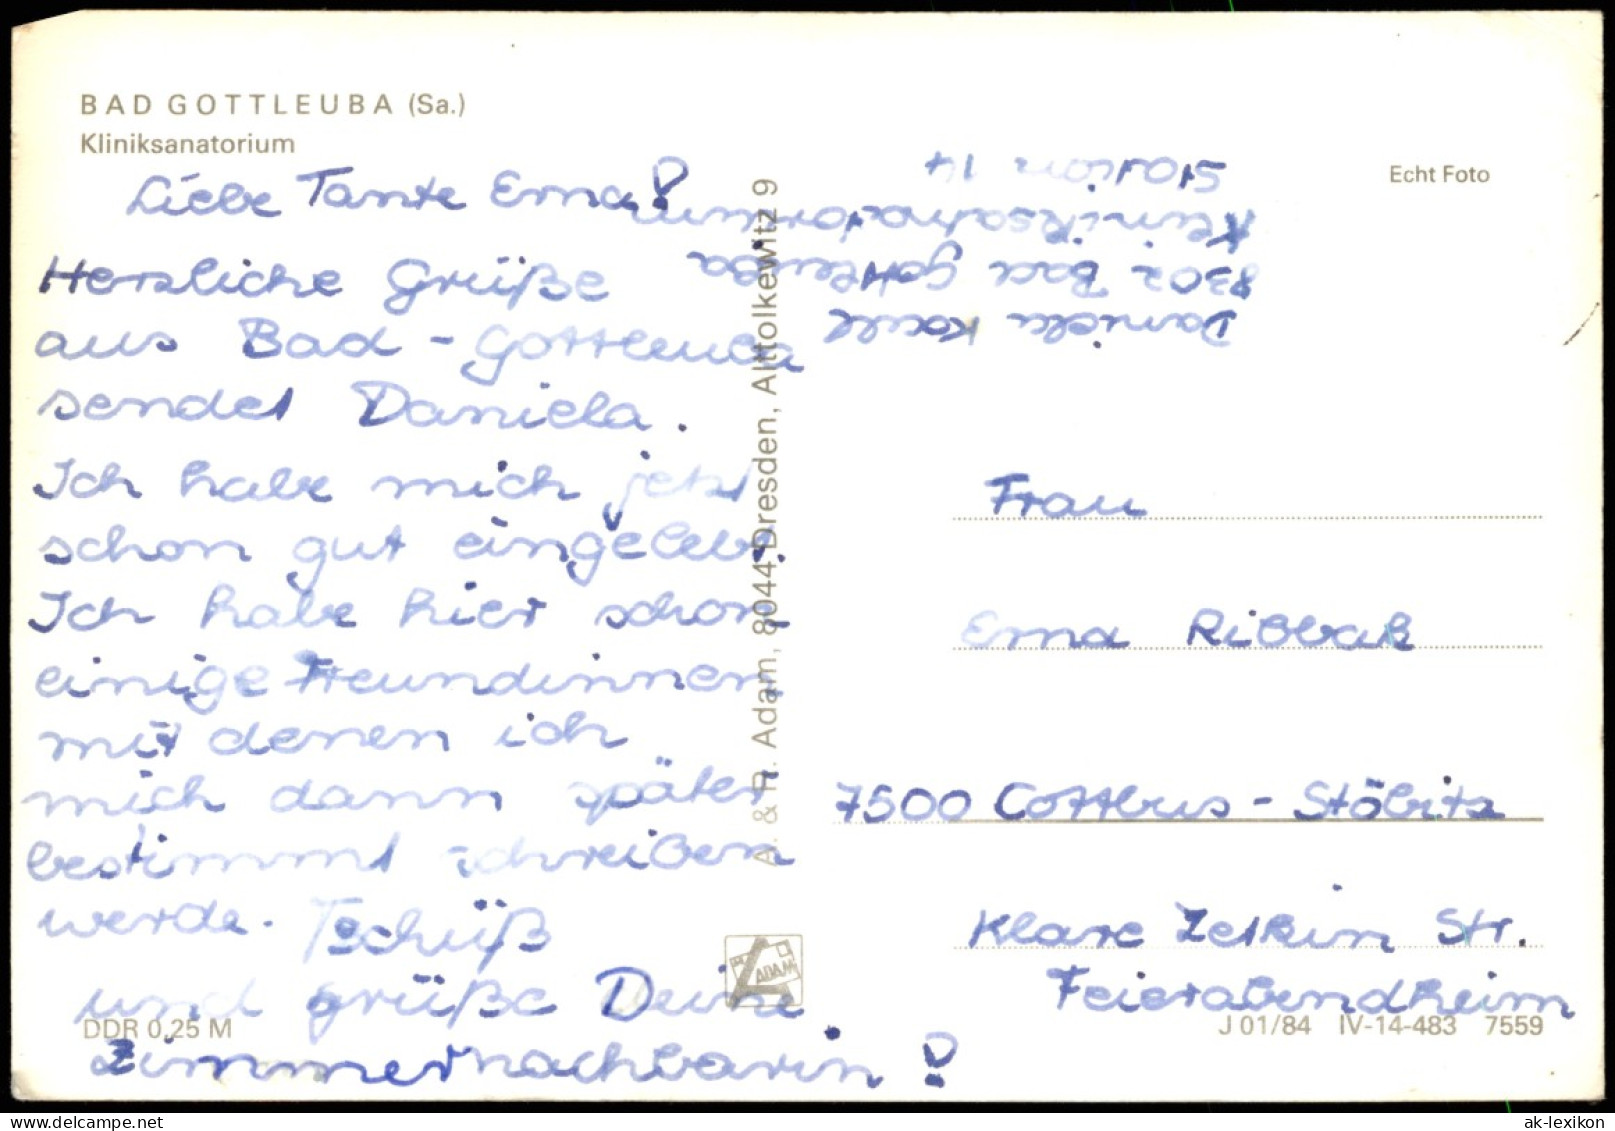 BAD GOTTLEUBA (Sa.)
Kliniksanatorium
Liebe Tante Erna!
Herzliche Grüße
aus Bad-Gottleuba
sendet Daniela.
Ich habe mich jetzt
schon gut eingelebt.
Ich habe hier schon
einige Freundinnen
mit denen ich
mich dann später
bestimmt schreiben
werde. Tschüß
und grüße Deine
Zimmernachbarin!
DDR 0,25 M
A. & R. Adam, 8044 Dresden, Altolkewitz 9
ADAM
Echt Foto
Daniela
8302 Bad Gottleuba
Kliniksanatorium
Station 14
Frau
Erna Ribbak
7500 Cottbus - Ströbitz
Klare Zetkin Str.
Feierabendheim
J 01/84 IV-14-483 7559
ak-lexikon
delcampe.net